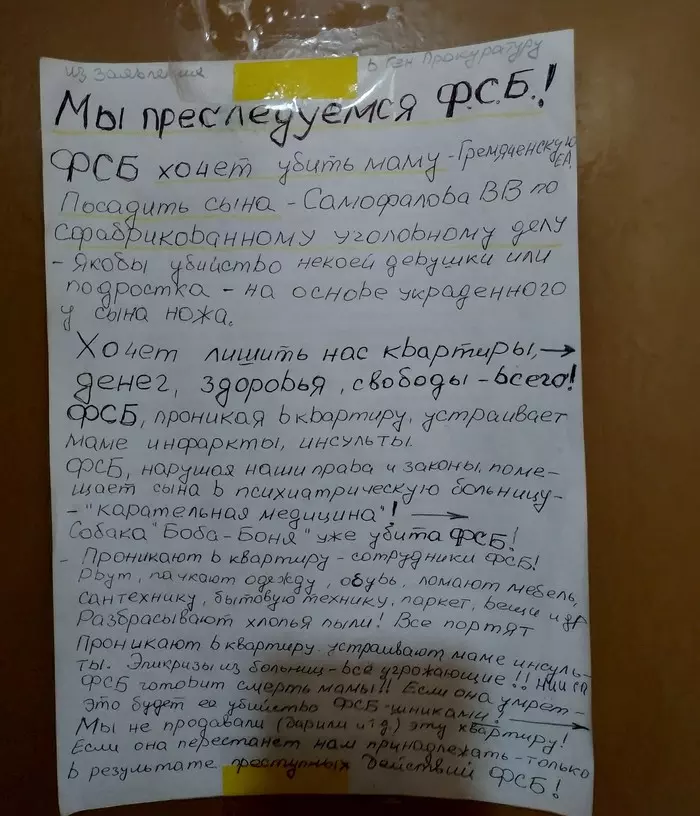 из заявления в Ген Прокуратуру
Мы преследуемся Ф.С.Б.!
ФСБ хочет убить маму - Гремяченскую ЕА.
Посадить сына - Самофалова ВВ по
сфабрикованному уголовному делу
- Якобы убийство некоей девушки или
подростка - на основе украденного
у сына ножа.
Хочет лишить нас квартиры, →
денег, здоровья, свободы - всего!
ФСБ, проникая в квартиру, устраивает
маме инфаркты, инсульты.
ФСБ, нарушая наши права и законы, поме-
щает сына в психиатрическую больницу-
- "карательная медицина"! →
Собака "Боба-Боня" уже убита ФСБ!
- Проникают в квартиру - сотрудники ФСБ!
Рвут, пачкают одежду, обувь, ломают мебель,
сантехнику, бытовую технику, паркет, вещи и др
Разбрасывают хлопья пыли! Все портят
Проникают в квартиру. устраивают маме инсуль-
ты. Эпикризы из больниц - все угрожающие!! НИИ СП
ФСБ готовит смерть мамы!!! Если она умрет -
это будет ее убийство ФСБ-шниками! →
Мы не продавали (дарили и т д.) эту квартиру!
Если она перестанет нам принадлежать - только
в результате преступных действий ФСБ!